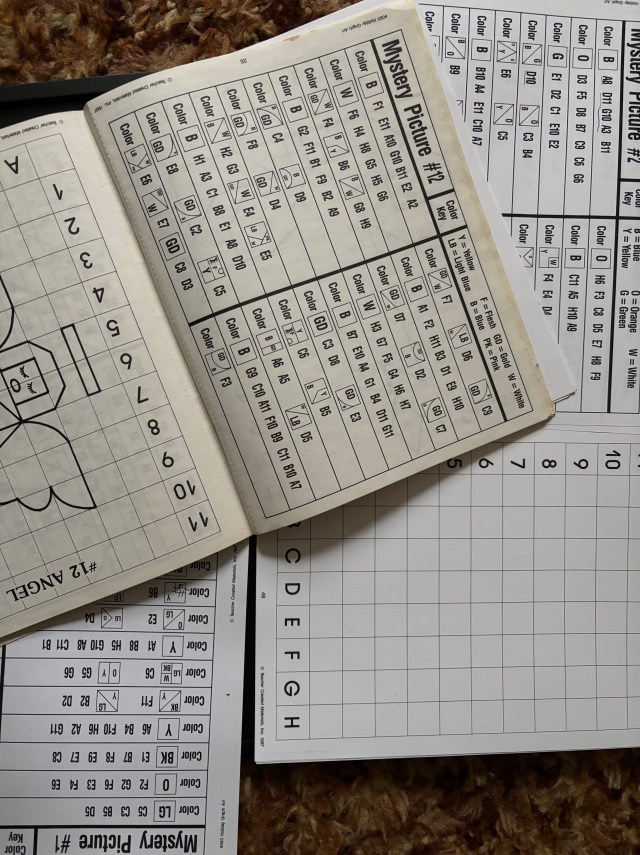 Mystery Picture #12
Color Key
Y = Yellow F = Flesh GD = Gold W = White
LB = Light Blue B = Blue PK = Pink
Color B F1 E11 A10 G10 B11 E2 A2
Color W F6 H4 H8 G5 H5 G6
Color GD W F4 B Y B6 B W G8 H9
Color B G2 F11 B1 F9 B2 A9
Color GD C4 D9
Color GD F8 GD D4
Color B W H2 G3 W E4 E5
Color B H1 A3 C1 B8 E1 A8 D10
Color GD E8 GD C2 C5
Color LB E6 W E7 GD C8 D3
Color GD W F7 LB D6 GD C9
Color B A1 F2 H11 B3 D1 E9 H10
Color GD D7 B D2 GD C7
Color W H3 G7 F5 G4 H6 H7
Color B B7 E10 A4 G1 B4 D11 G11
Color GD C3 D8 GD E3
Color C6 B Y B5 LB D5
Color B A6 A5
Color B G9 C10 A11 F10 B9 C11 B10 A7
Color GD F3
26
#593 Holiday Graph Art
© Teacher Created Materials, Inc. 1987
A
1
2
3
4
5
6
7
8
9
10
11
#12 ANGEL
© Teacher Created Materials
Mystery Picture #2
Color Key
B = Blue O = Orange W = White
Y = Yellow G = Green
Color B A8 D11 C10 A3 B11
Color O D3 F5 D8 B7 C9 C6 G6
Color G E1 D2 C1 E10 E2
Color B G D10 B O C3 B4
Color E6 Y O C5
Color B B10 A4 E11 C10 A7
Color B9
Color O H6 F3 C8 D5 E7 H8 F9
Color B C11 A5 H10 A9
Color Y W F4 E4 D4
Color
5
6
7
8
9
10
C
D
E
F
G
H
48
© Teacher Created Materials, Inc. 1987
Mystery Picture #1
Color Key
Color LG C5 C3 B5 D5
Color O F2 G2 F6 E3 F4 E6
Color BK E1 B7 F8 E9 E7 C8
Color Y A6 B4 F10 H6 A2 G11
Color BK Y F11 LG Y B2 D2
Color LG W BK C6 O Y G5 G6
Color Y A1 B8 H5 G10 A8 C11 B1
Color O LG E2 LG D4
Color B6
4
#593 Holiday Graph Art
© Teacher Created Materials, Inc. 1987